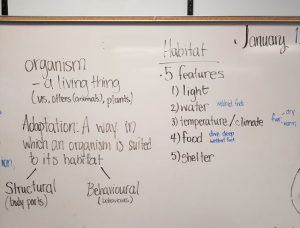 organism
- a living thing
(us, otters (animals), plants)
Adaptation: A way in
which an organism is suited
to its habitat
Structural
(body parts)
Behavioural
(behaviours)
Habitat
5 features
1) light
2) water
3) temperature/climate
dry
warm
4) food
dive deep
webbed feet
5) shelter
January